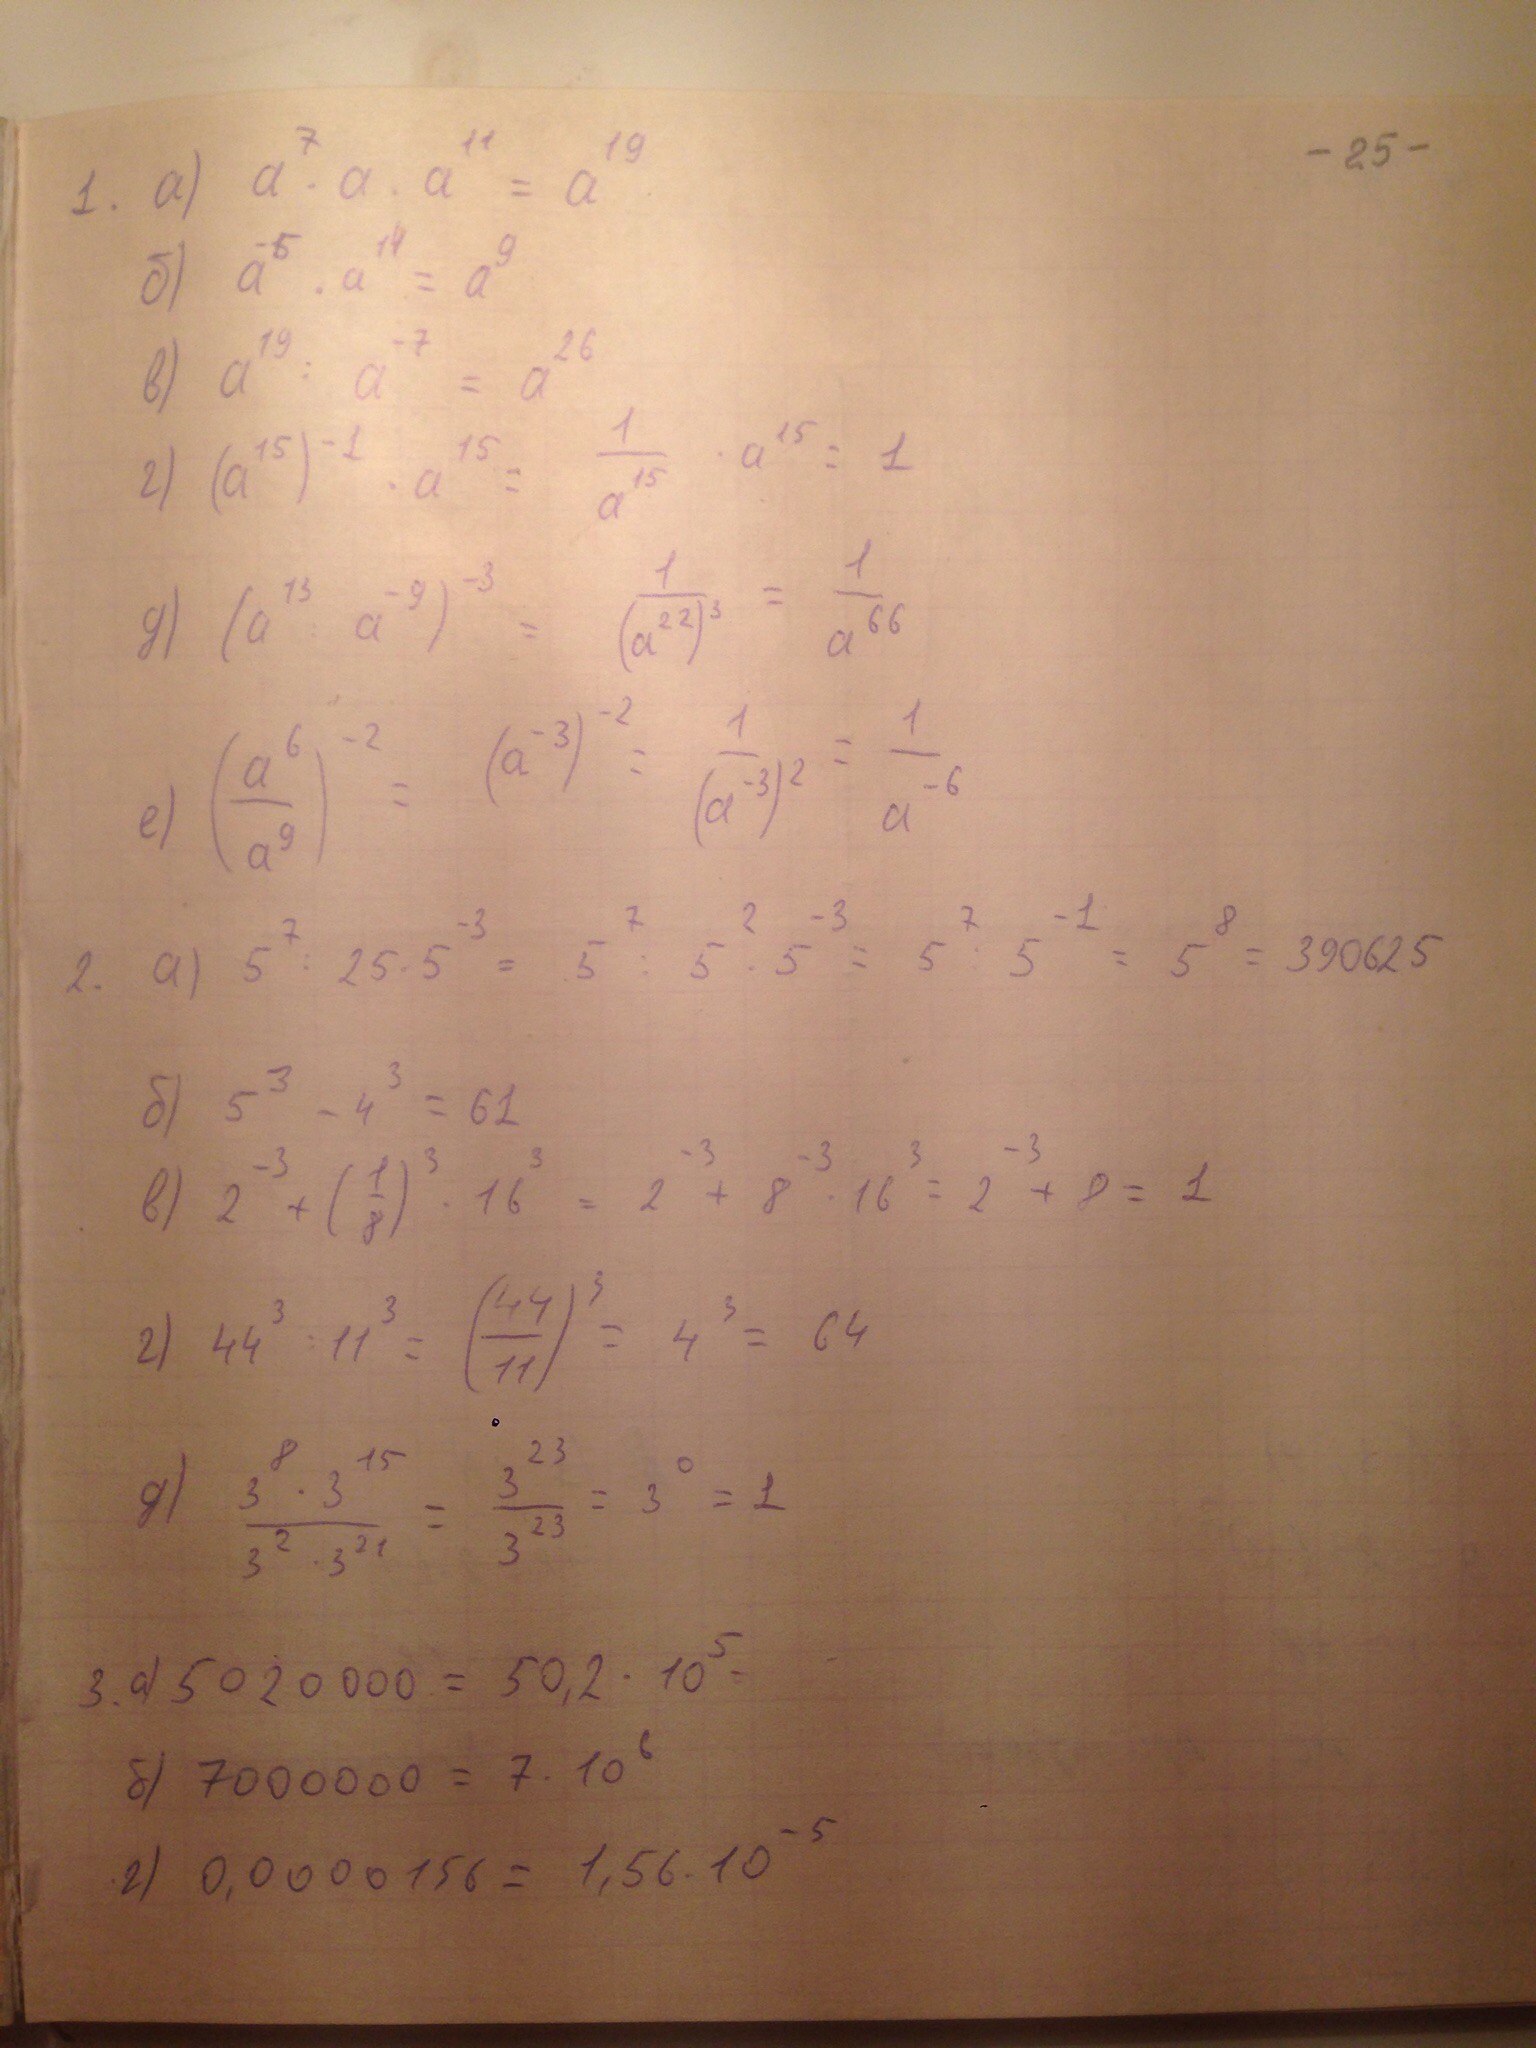 - 25 -
1. а) a⁷ · a · a¹¹ = a¹⁹
б) a⁻⁵ · a¹⁴ = a⁹
в) a¹⁹ : a⁻⁷ = a²⁶
г) (a¹⁵)⁻¹ · a¹⁵ = 1/a¹⁵ · a¹⁵ = 1
д) (a¹³ : a⁻⁹)⁻³ = 1/(a²²)³ = 1/a⁶⁶
е) (a⁶/a⁹)⁻² = (a⁻³)⁻² = 1/(a⁻³)² = 1/a⁻⁶
2. а) 5⁷ : 25 · 5⁻³ = 5⁷ : 5² · 5⁻³ = 5⁷ : 5⁻¹ = 5⁸ = 390625
б) 5³ - 4³ = 61
в) 2⁻³ + (1/8)³ · 16³ = 2⁻³ + 8⁻³ · 16³ = 2⁻³ + 8 = 1
г) 44³ : 11³ = (44/11)³ = 4³ = 64
д) 3⁸ · 3¹⁵ / 3² · 3²¹ = 3²³/3²³ = 3⁰ = 1
3. а) 5020000 = 50,2 · 10⁵
б) 7000000 = 7 · 10⁶
г) 0,0000156 = 1,56 · 10⁻⁵